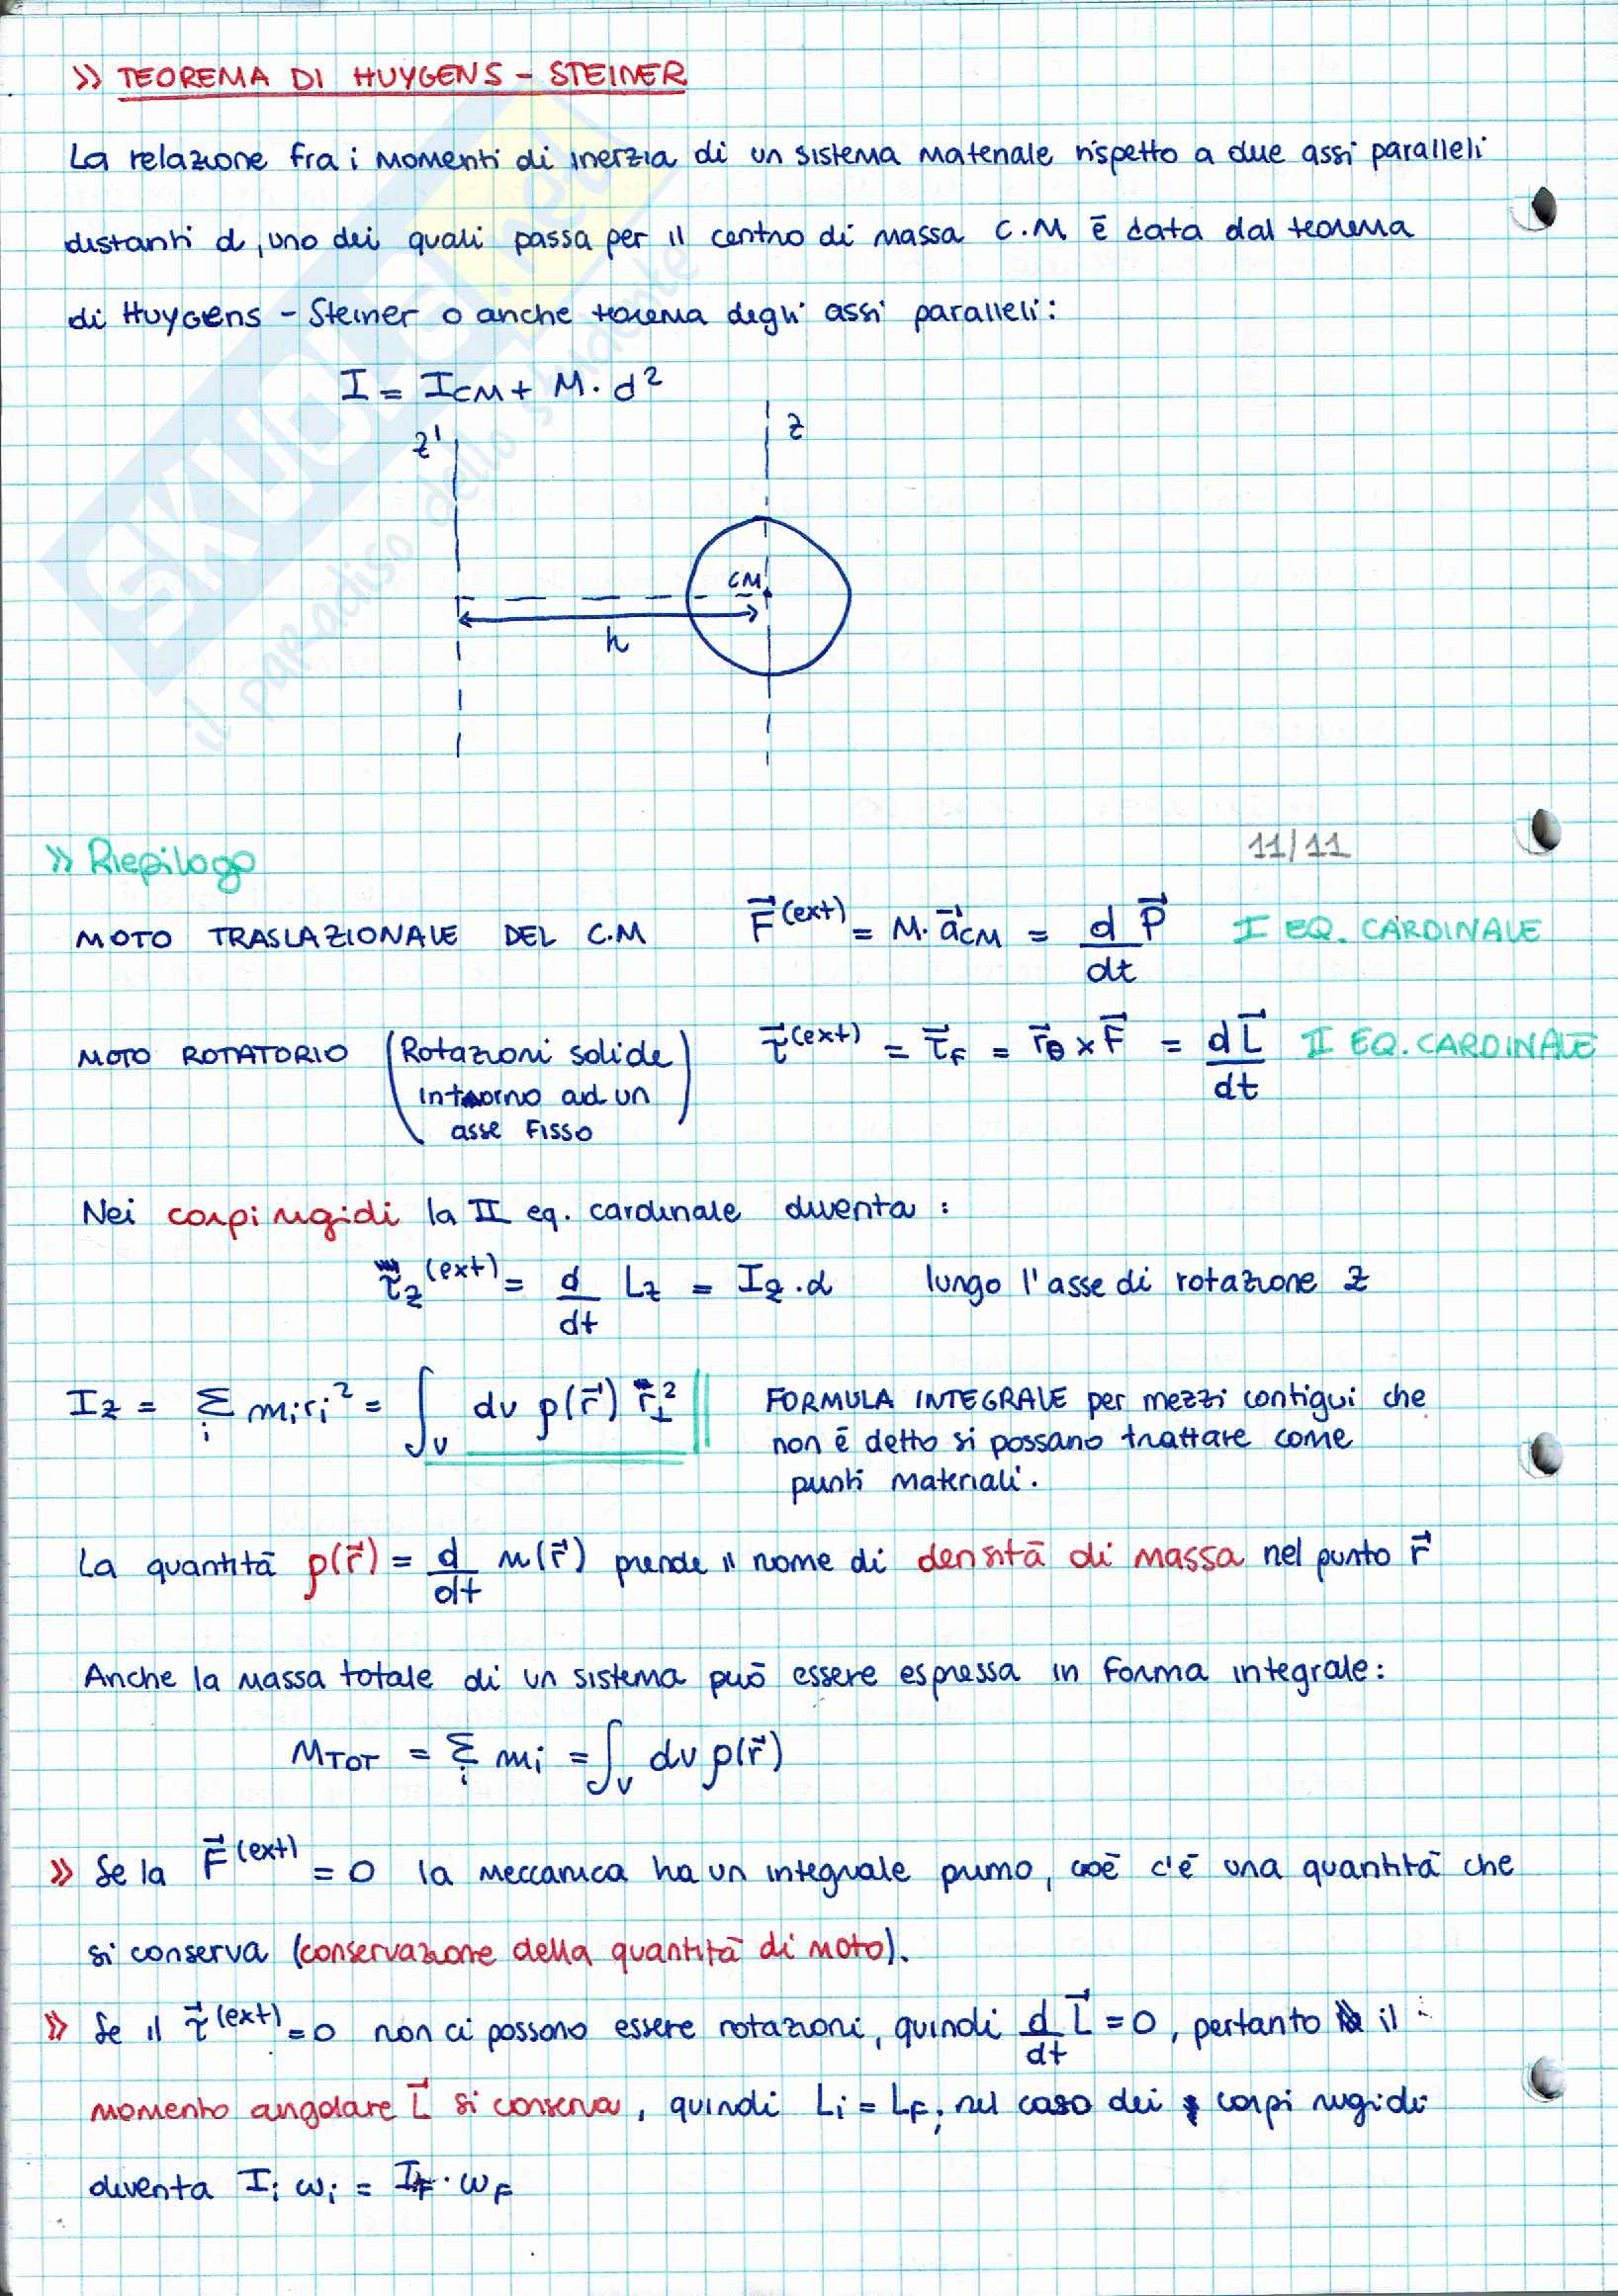 >> TEOREMA DI HUYGENS - STEINER
La relazione fra i momenti di inerzia di un sistema materiale rispetto a due assi paralleli
distanti d, uno dei quali passa per il centro di massa C.M è data dal teorema
di Huygens - Steiner o anche teorema degli assi paralleli:
I = I_CM + M · d²
z'
z
CM
h
>> Riepilogo
11/11
MOTO TRASLAZIONALE DEL C.M F⃗^(ext) = M · a⃗_CM = d/dt P⃗ I EQ. CARDINALE
MOTO ROTATORIO (Rotazioni solide intorno ad un asse fisso) τ⃗^(ext) = τ⃗_F = r⃗_θ × F⃗ = dL⃗/dt II EQ. CARDINALE
Nei corpi rigidi la II eq. cardinale diventa:
τ_z^(ext) = d/dt L_z = I_z · α lungo l'asse di rotazione z
I_z = Σ_i m_i r_i² = ∫_V dv ρ(r⃗) r_⊥² FORMULA INTEGRALE per mezzi contigui che
non è detto si possano trattare come
punti materiali.
La quantità ρ(r⃗) = d/dt m(r⃗) prende il nome di densità di massa nel punto r⃗
Anche la massa totale di un sistema può essere espressa in forma integrale:
M_TOT = Σ_i m_i = ∫_V dv ρ(r⃗)
>> Se la F⃗^(ext) = 0 la meccanica ha un integrale primo, cioè c'è una quantità che
si conserva (conservazione della quantità di moto).
>> Se il τ⃗^(ext) = 0 non ci possono essere rotazioni, quindi d/dt L⃗ = 0, pertanto il
momento angolare L⃗ si conserva, quindi L_i = L_F; nel caso dei corpi rigidi
diventa I_i ω_i = I_F · ω_F
SKUOLA.net
il paradiso dello studente